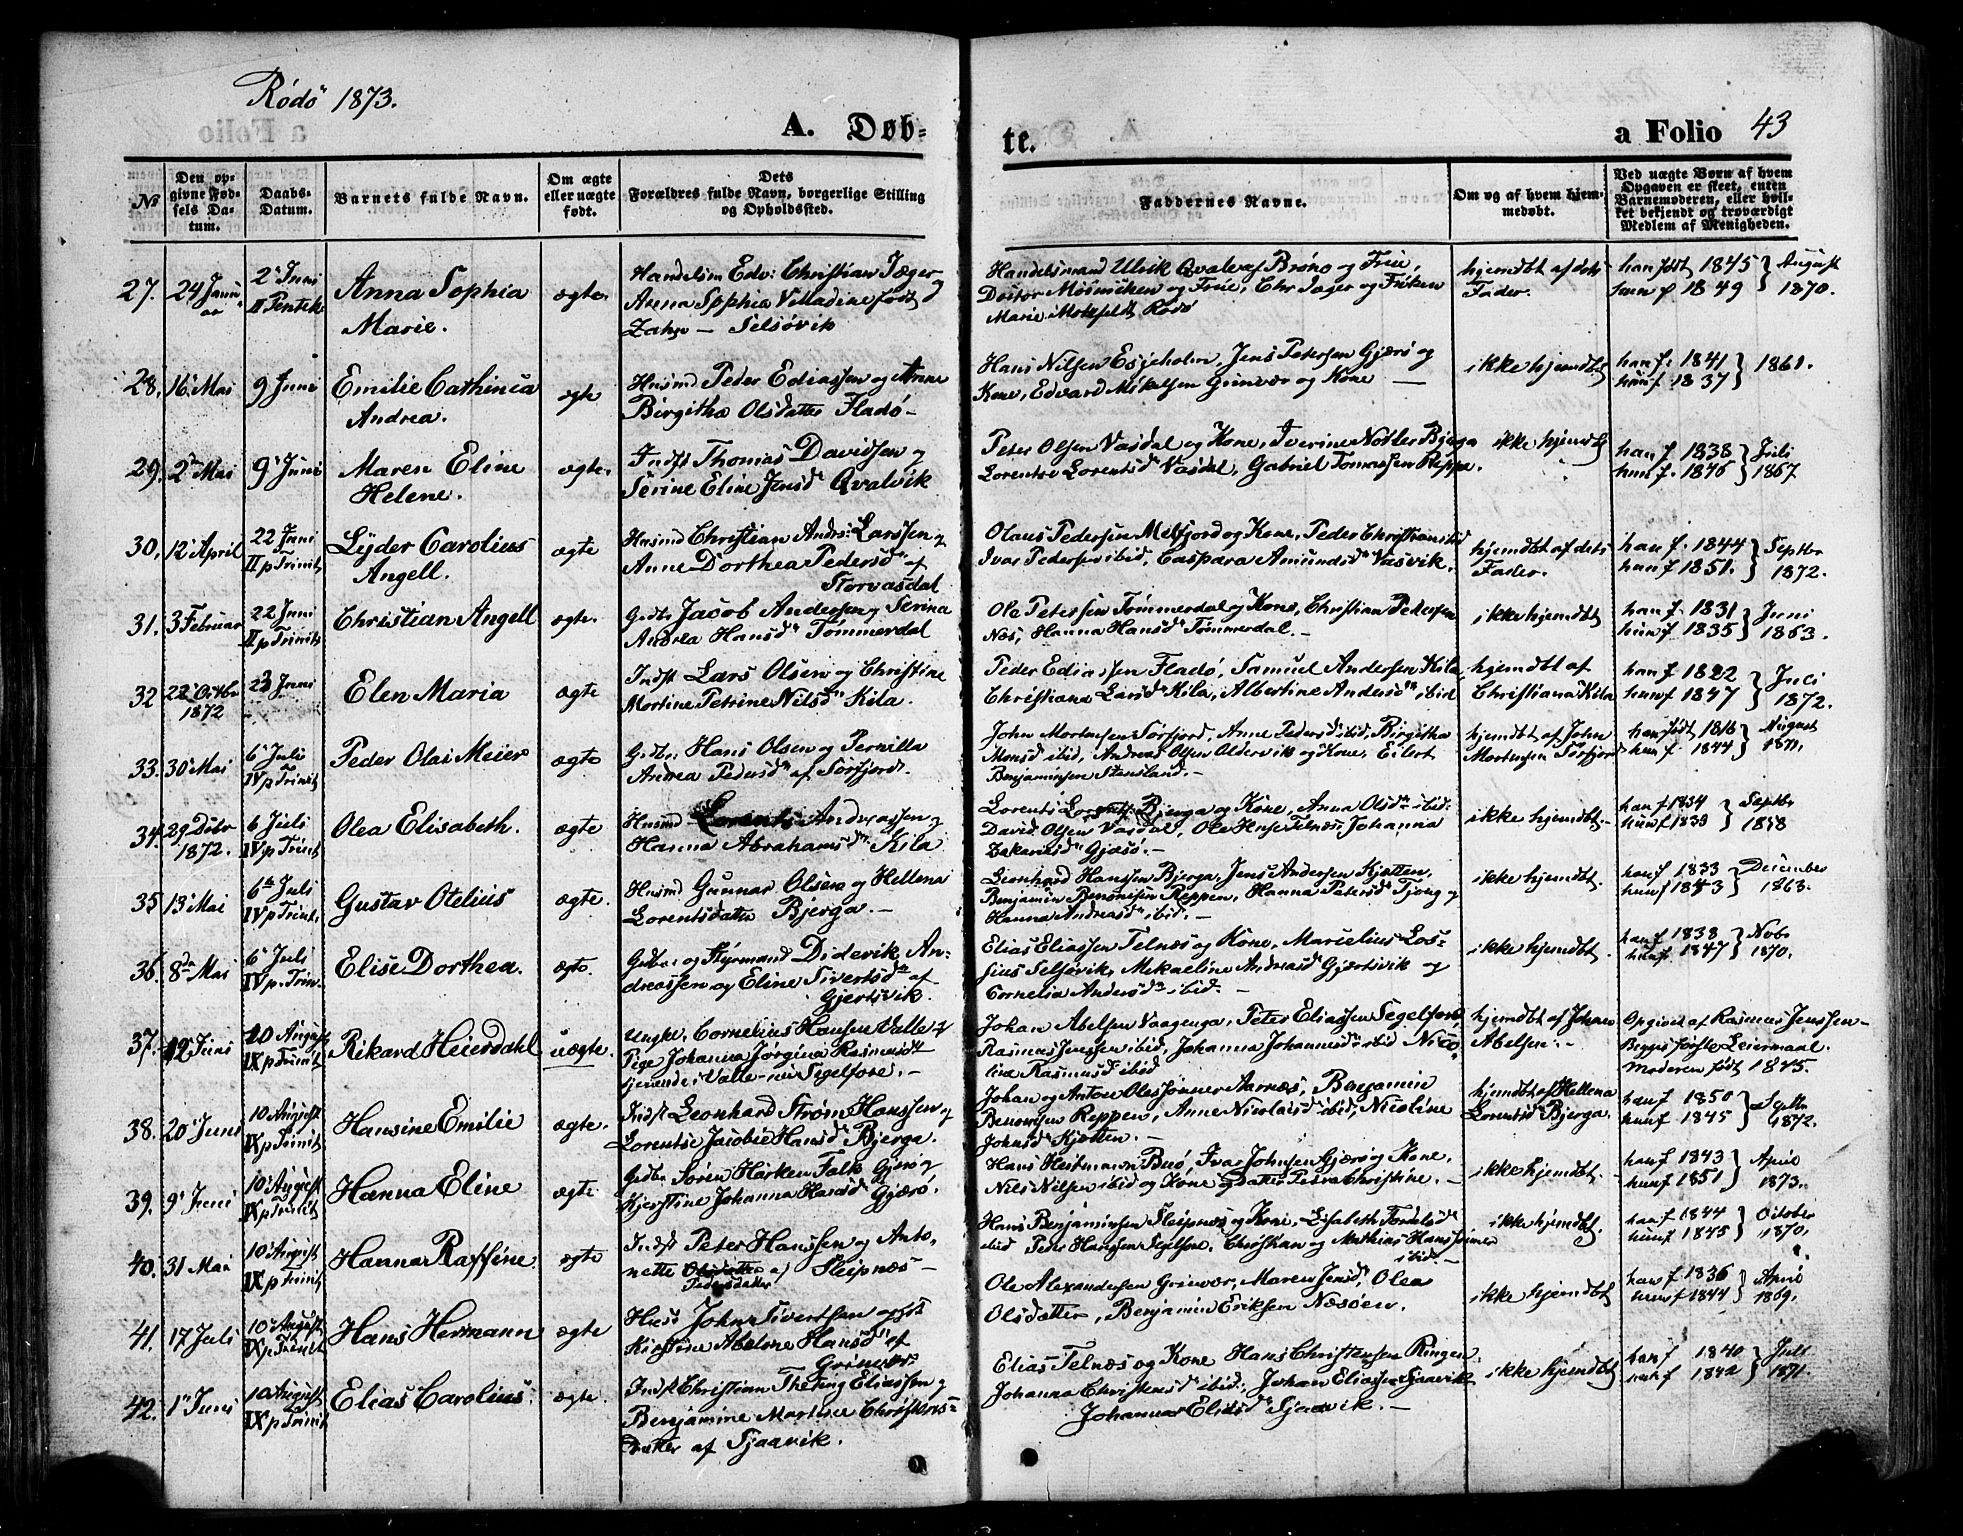 Rödö 1873.
A. Døb-
te.
a Folio 43
No
Den op-
givne Fød-
sels Da-
tum.
Daabs-
Datum.
Barnets fulde Navn.
Om ægte
eller uægte
født.
Dets
Forældres fulde Navn, borgerlige Stilling
og Opholdssted.
Faddernes Navne.
Om og af hvem hjem-
medøbt.
Ved uægte Børn af hvem
Opgaven er skeet, enten
Barnemoderen, eller hvil-
ket bekjendt og troværdigt
Medlem af Menigheden.
27. 24 Janu-
ar
2 Juni
II Pentek
Anna Sophia
Marie.
ægte
Handelsm Edv: Christian Jæger
Anna Sophia Villadine født
Zahn — Selsövik
Handelsmand Ulrik Qvale af Brönö og Frue,
Doktor og Frue, Chr Jæger og Fröken
Marie Motzfeldt Rödö
hjemdbt af dets
Fader.
han født 1845
hun f 1849
August
1870.
28. 16 Mai
9 Juni
Emilie Cathinca
Andrea.
ægte
Husmd Peder Ediassen og Anne
Birgitha Olsdatter Fladö
Hans Nilsen Esjeholm, Jens Petersen Gjærö og
Kone, Edvard Mikelsen Grinvær og Kone —
ikke hjemdbt
han f. 1841
hun f 1837
1861.
29. 2 Mai
9 Juni
Maren Eline
Helene.
ægte.
Indst Thomas Davidsen og
Serine Eline Jensd Qvalvik
Peter Olsen Vasdal og Kone, Iverine Bjerga
Lorentse Lorentsd Vasdal, Gabriel Tomassen Reppa.
ikke hjemdbt
han f 1838
hun f. 1845
Juli
1867
30. 12 April
22 Juni
II p Trinit
Lyder Carolius
Angell.
ægte
Husmd Christian Andrs: Larssen og
Anne Dorthea Pedersd af
Storvasdal
Olaus Pedersen Melfjord og Kone, Peder Christians ibid
Ivar Pedersen ibid, Caspara Amundsd Vasvik.
hjemdbt af dets
Fader.
han f. 1844
hun f 1851.
Septbr
1872.
31. 3 Februar
22 Juni
II p Trinit
Christian Angell
ægte.
Gdbr Jacob Andersen og Serina
Andrea Hansd Tömmerdal
Ole Petersen Tömmerdal og Kone, Christian Pedersen
Nes, Hanna Hansd Tömmerdal. —
ikke hjemdbt
han f. 1831
hun f 1835
Juni
1863.
32 22 Octbr
1872
23 Juni
Elen Maria
ægte
Indst Lars Olsen og Christine
Martine Petrine Nilsd Kila.
Peder Ediassen Fladö, Samuel Andersen Kila
Christiana Larsd Kila, Albertine Andersd ibid
hjemdbt af
Christiana Kila
han f 1822
hun f 1847
Juli
1872.
33. 30 Mai
6 Juli
IV p Trinit
Peder Olai Meier
ægte
Gdbr. Hans Olsen og Pernilla
Andrea Pedersd af Sörfjord.
John Mortensen Sörfjord, Anne Pedersd ibid, Birgitha
Monsd ibid, Andreas Olsen Oldervik og Kone, Eilert
Benjaminsen Stensland. —
hjemdbt af John
Mortensen Sörfjord
han født 1816
hun f 1844
August
1871.
34. 29 Debr
1872.
6 Juli
IV p Trinit
Olea Elisabeth.
ægte
Husmd Lorents Andreassen og
Hanna Abrahamsd Kila
Lorents Lorentss Bjerga og Kone, Anna Olsd ibid:
David Olsen Vasdal, Ole Telnæs, Johanna
Zakariasd Gjæsö. —
ikke hjemdbt.
han f 1834
hun f 1833
Septbr
1858
35 13 Mai
6te Juli
IV p Trinit.
Gustav Otelius
ægte.
Husmd Gunnar Olsen og Hellena
Lorentsdatter Bjerga. —
Leonhard Hanssen Bjerga, Jens Andersen Kjötten,
Benjamin Benonisen Reppen, Hanna Petersd Tjong og
Hanna Andreasd ibid. —
ikke hjemdbt.
han f 1833
hun f 1843
December
1863.
36. 8de Mai
6 Juli
IV p. Trin.
Elise Dorthea.
ægte.
Gdbr og Styrmand Diderik An-
dreassen og Eline Sivertsd af
Gjertsvik.
Elias Eliassen Telnæs og Kone, Marselius Los-
sius Selsövik, Mekaeline Andreasd Gjærtsvik og
Cornelia Andersd ibid. —
ikke hjemdbt.
han f 1838
hun f 1847
Nobr
1870.
37. 12 Juni
10 August
IX p Trinit
Rikard Heierdahl
uægte.
Ungkl. Cornelius Hansen Valle og
Pige Johanna Jörgina Rasmusdt
tjenende i Valle Segelfore. —
Johan Abelsen Vaagenga, Peter Eliassen Segelfore,
Rasmus Jenssen ibid, Johanna Johannesd ibid Nico-
line Rasmusd ibid
hjemdbt af Johan
Abelsen. —
Opgivet af Rasmus Jenssen —
Begges förste Leiermaal.
Moderen født 1845.
38. 20 Juni
10 August
IX p Trinit
Hansine Emilie
ægte.
Indst Leonhard Ström Hanssen og
Lorentse Jacobie Hansd Bjerga.
Johan og Anton Olessönner Aarnæs, Benjamin
Benonisen Reppen, Anne Nicolaisd ibid, Nicoline
Johnsd Kjötten. —
hjemdbt af Hellena
Lorentsd Bjerga.
han f 1850
hun f 1845
Septbr
1872.
39. 9 Juni
10 August
IX p Trinit
Hanna Eline
ægte
Gdbr Sören Falk Gjerö og
Kjerstine Johanna Hansd Gjærö.
Hans Heitmann Buö, Ivar Johnsen Gjærö og Kone,
Nils Nilsen ibid og Kone og Datter Petra Christine. —
ikke hjemdbt. —
han f 1843
hun f 1851
April
1873.
40. 31 Mai
10 August
IX p Trinit
Hanna Raffine
ægte
Indst Peter Hanssen og Anto-
nette Olsdatter af Sleipnæs —
Pedersdatter
Hans Benjaminsen Sleipnæs og Kone, Elisabeth
ibid Peder Hansen Segelfore, Christian og Mathias Hanssönner
ibid. —
ikke hjemdbt.
han f 1844
hun f 1845
October
1870.
41. 17 Juli
10 August
IX p Trinit
Hans Hermann
ægte
Husm John Sivertsen og
Kirstine Abeline Hansd af
Grinvær
Ole Alexandersen Grinvær, Maren Jensd, Olea
Olsdatter, Benjamin Eriksen Næsöen.
ikke hjemdbt
han f 1836
hun f 1844
April
1869.
42. 1 Juni
10 August
IX p Trinit
Elias Carolius.
ægte.
Indst Christian Eliassen og
Benjamine Martine Christens-
datter af Sjaavik.
Elias Telnæs og Kone Hans Christensen Ringen
Johanna Christensd ibid., Johan Eliassen Sjaavik
Johanna Eliasd Sjaavik. —
ikke hjemdbt
han f 1840
hun f 1842
Juli
1871.